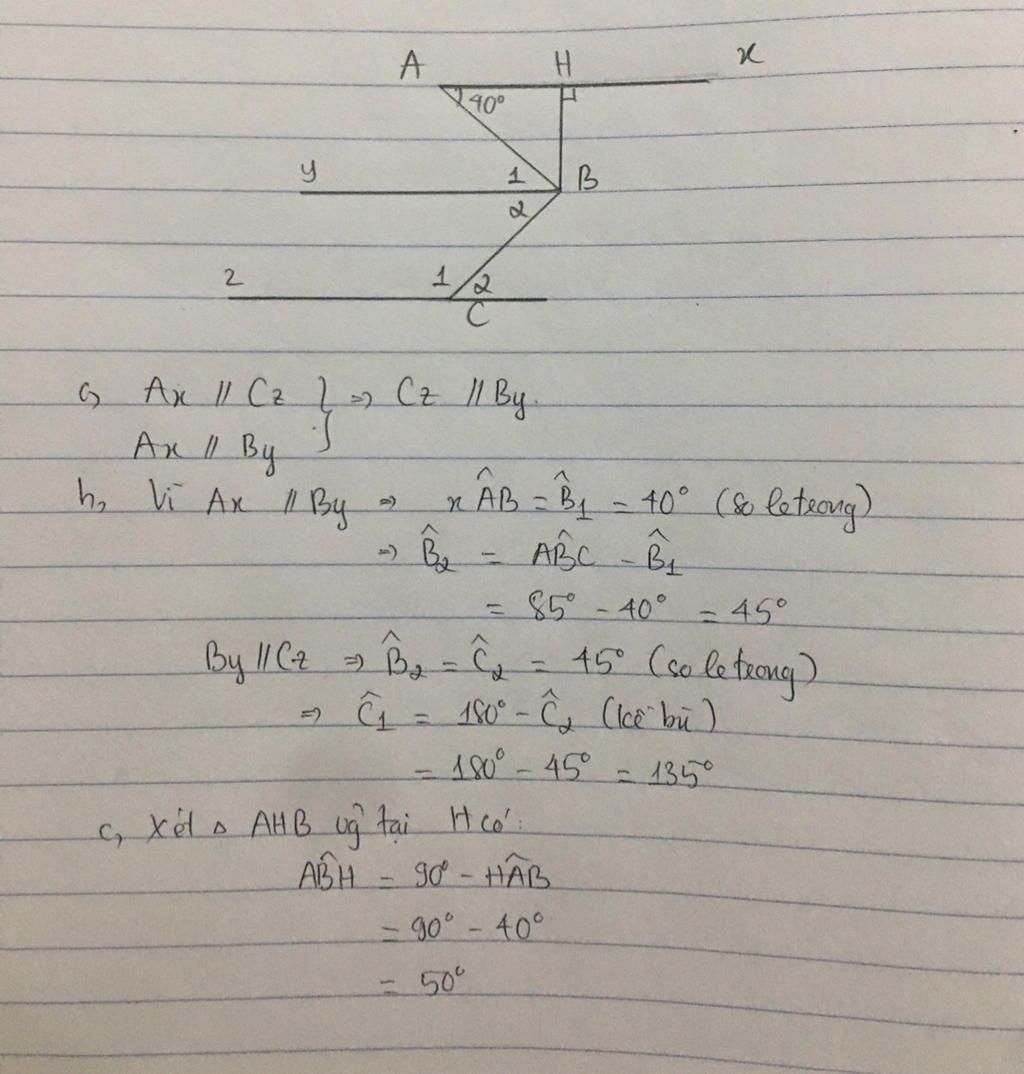 A H x
40°
y 1 B
2
z 1 2
C
a, Ax // Cz } => Cz // By.
Ax // By
b, Vì Ax // By => xÂB = B̂1 = 40° (so le trong)
=> B̂2 = AB̂C - B̂1
= 85° - 40° = 45°
By // Cz => B̂2 = Ĉ2 = 45° (so le trong)
=> Ĉ1 = 180° - Ĉ2 (kề bù)
= 180° - 45° = 135°
c, Xét △ AHB vg̃ tại H có:
AB̂H = 90° - HÂB
= 90° - 40°
= 50°